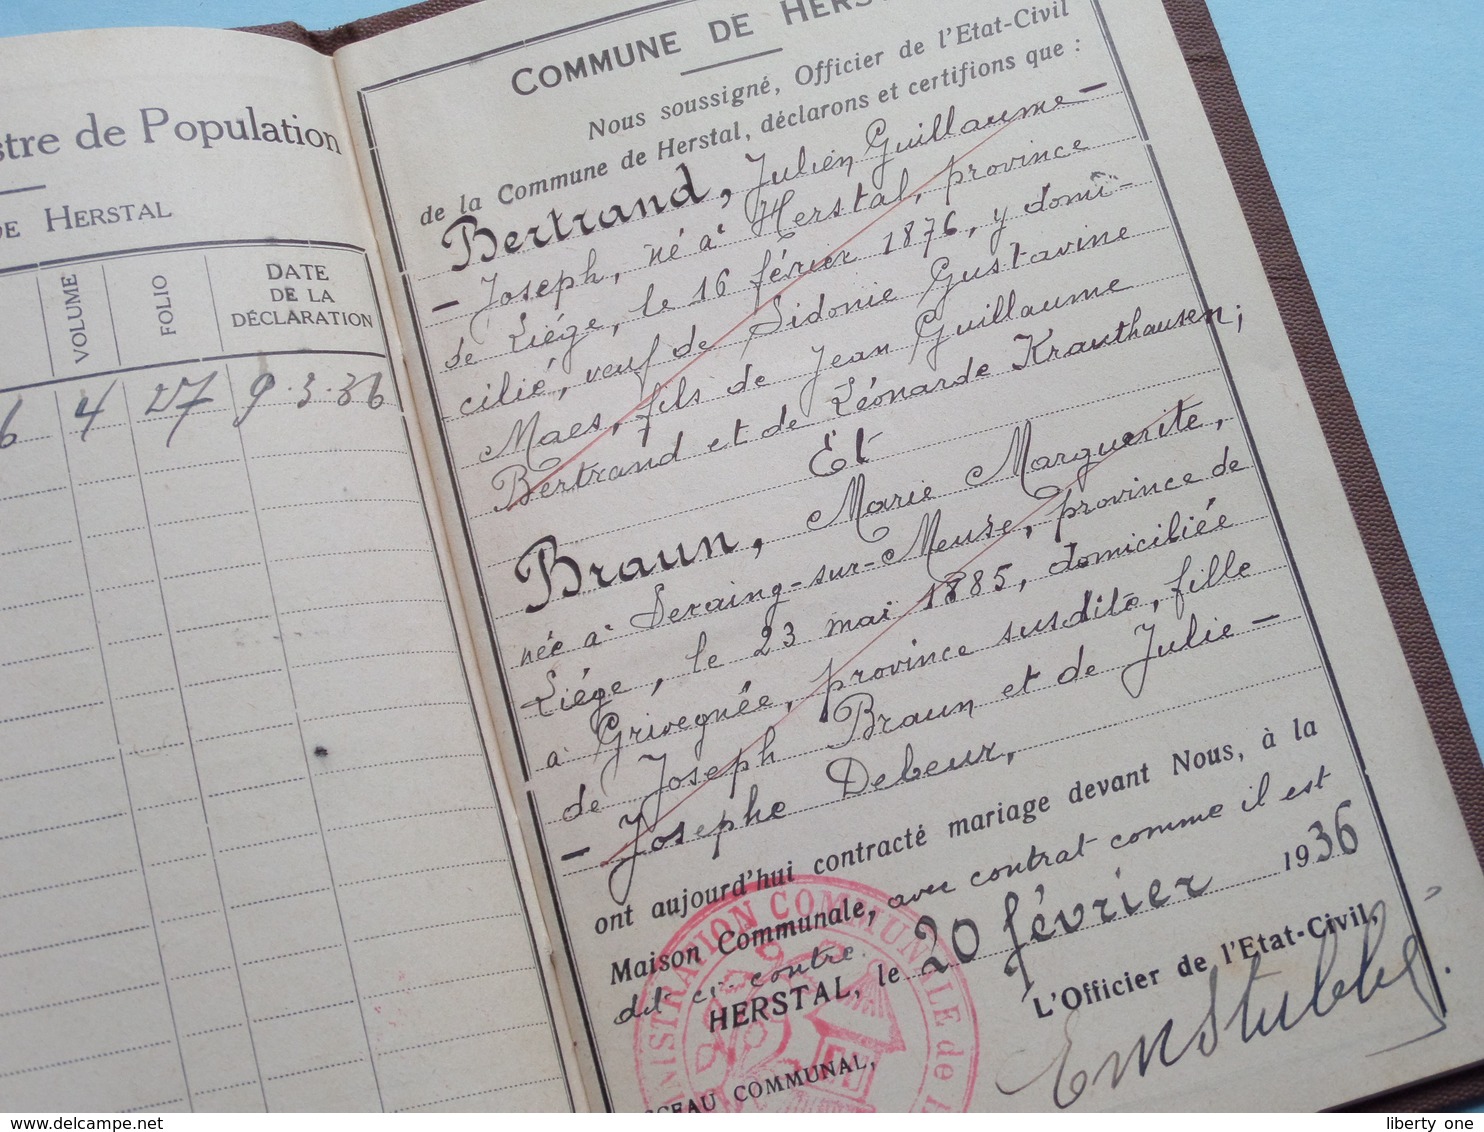 stre de Population
DE HERSTAL
VOLUME
FOLIO
DATE
DE LA
DÉCLARATION
6 4 27 9.3.36
COMMUNE DE HERS
Nous soussigné, Officier de l'Etat-Civil
de la Commune de Herstal, déclarons et certifions que :
Bertrand, Julien Guillaume -
- Joseph, né à Herstal, province
de Liége, le 16 février 1876, y domi-
cilié, veuf de Sidonie Gustavine
Maes, fils de Jean Guillaume
Bertrand et de Léonarde Krauthausen;
Et
Braun, Marie Marguerite,
née à Seraing-sur-Meuse, province de
Liége, le 23 mai 1885, domiciliée
à Grivegnée, province susdite, fille
de Joseph Braun et de Julie -
- Josephe Debeur,
ont aujourd'hui contracté mariage devant Nous, à la
Maison Communale, avec contrat comme il est
dit ci-contre.
HERSTAL, le 20 février 1936
L'Officier de l'Etat-Civil,
SCEAU COMMUNAL,
NISTRATION COMMUNALE de H
liberty one